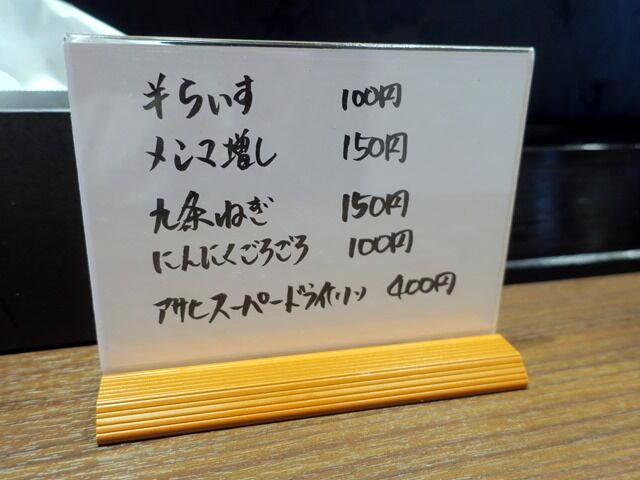 半らいす 100円
メンマ増し 150円
九条ねぎ 150円
にんにくごろごろ 100円
アサヒスーパードライ 400円